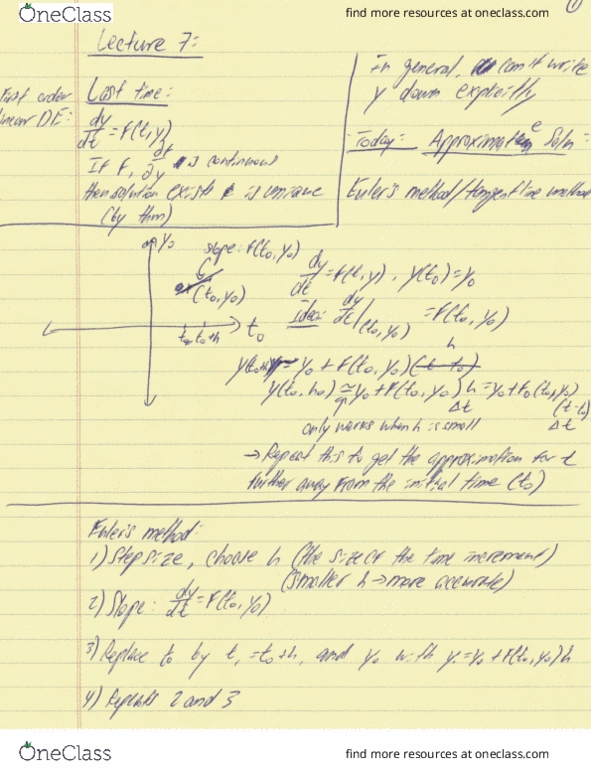 OneClass
find more resources at oneclass.com
1
Lecture 7:
First order
linear DE:
Last time:
dy/dt = F(t,y)
If F, ∂F/∂y is continuous
then solution exists & is unique
(by thm)
In general, can't write
y down explicitly
Today: Approximate Soln:
Euler's method/tangent line method
y₀
slope: F(t₀,y₀)
(t₀,y₀)
t₀ t₀+h
t₀
dy/dt = F(t,y), y(t₀)=y₀
Idea: dy/dt|(t₀,y₀) = F(t₀,y₀)
h
y(t₀+h) ≈ y₀ + F(t₀,y₀)(t-t₀)
y(t₀,h₀) ≅ y₀+F(t₀,y₀) h = y₀+F₀(t₀,y₀)
Δt (t-t₀)
only works when h is small Δt
→ Repeat this to get the approximation for t
further away from the initial time (t₀)
Euler's method:
1) Step size, choose h (the size of the time increment)
(smaller h → more accurate)
2) Slope: dy/dt = F(t₀,y₀)
3) Replace t₀ by t₁=t₀+h, and y₀ with y₁=y₀+F(t₀,y₀)h
4) Repeats 2 and 3
OneClass
find more resources at oneclass.com